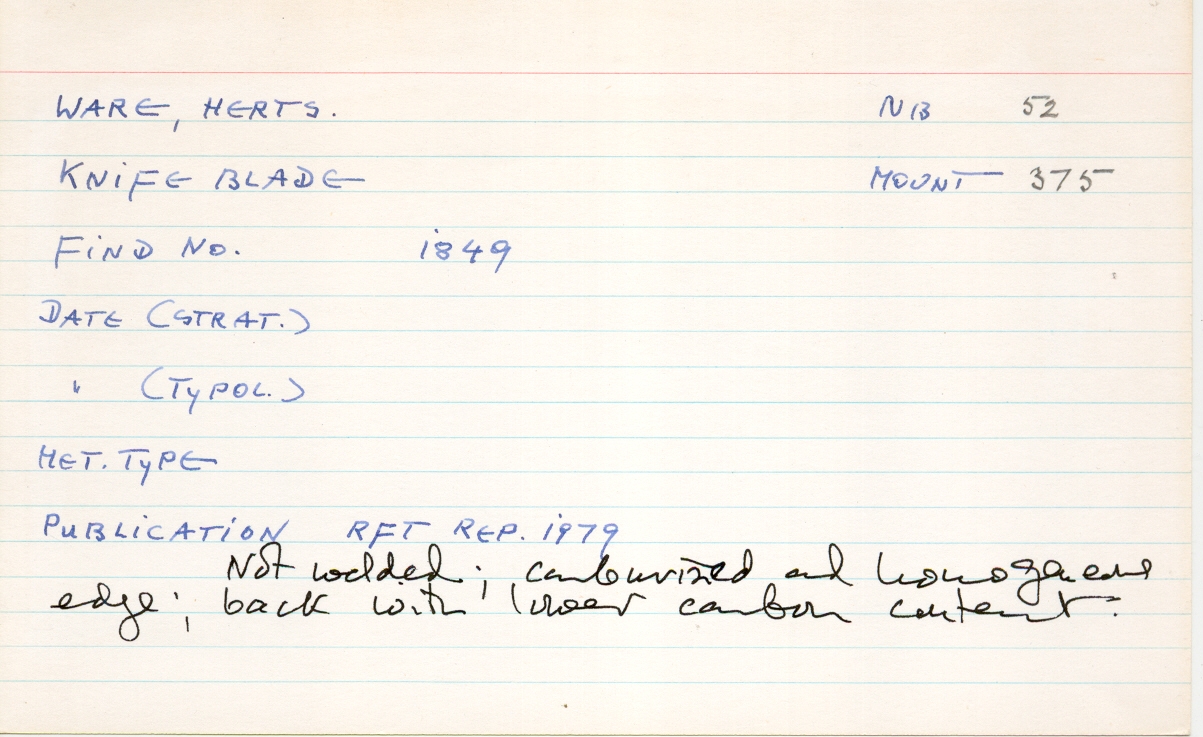 WARE, HERTS. NB 52
KNIFE BLADE MOUNT 375
FIND NO. 1849
DATE (STRAT.)
" (TYPOL.)
MET. TYPE
PUBLICATION RFT REP. 1979
Not welded; carburized and homogeneous
edge; back with lower carbon content.